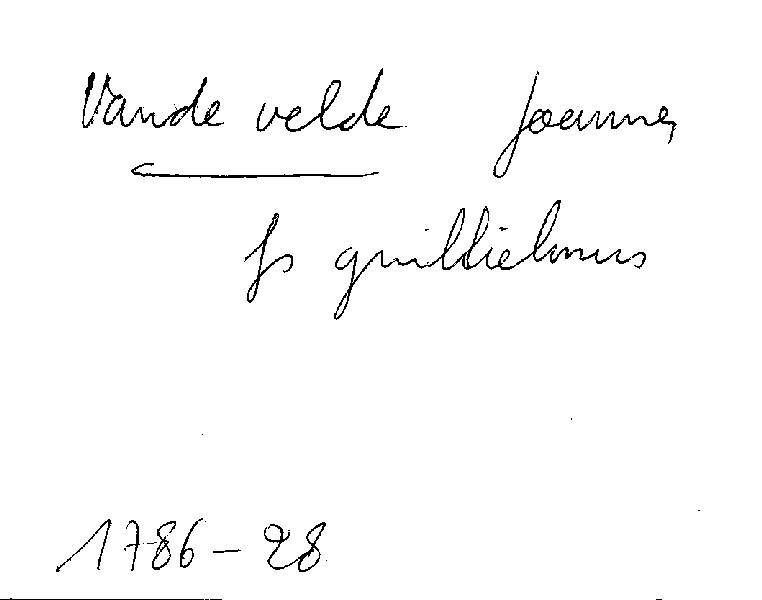 Vande velde Joannes
fs guillielmus
1786-28